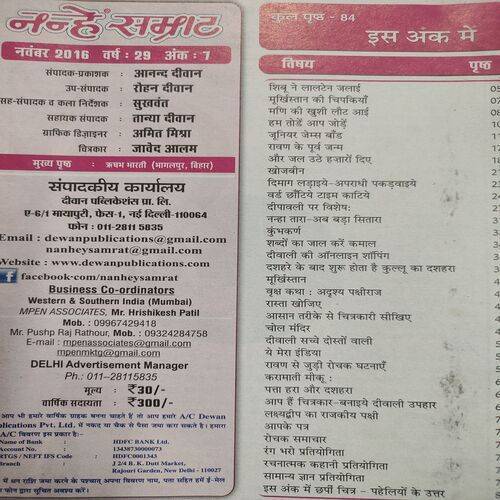 नन्हें सम्राट
नवंबर 2016 वर्ष : 29 अंक : 7
संपादक-प्रकाशक : आनन्द दीवान
उप-संपादक : रोहन दीवान
सह-संपादक व कला निर्देशक : सुखवंत
सहायक संपादक : तान्या दीवान
ग्राफिक डिज़ाइनर : अमित मिश्रा
चित्रकार : जावेद आलम
मुख्य पृष्ठ : ऋषभ भारती (भागलपुर, बिहार)
संपादकीय कार्यालय
दीवान पब्लिकेशंस प्रा. लि.
ए-6/1 मायापुरी, फेस-1, नई दिल्ली-110064
फोन : 011-2811 5835
Email : dewanpublications@gmail.com
nanheysamrat@gmail.com
Website : www.dewanpublications.com
facebook.com/nanheysamrat
Business Co-ordinators
Western & Southern India (Mumbai)
MPEN ASSOCIATES, Mr. Hrishikesh Patil
Mob. : 09967429418
Mr. Pushp Raj Rathour, Mob. : 09324284758
E-mail : mpenassociates@gmail.com
mpenmktg@gmail.com
DELHI Advertisement Manager
Ph.: 011-28115835
मूल्य : ₹30/-
वार्षिक सदस्यता : ₹300/-
आप भी हमारे वार्षिक ग्राहक बनना चाहते हैं तो आप हमारे A/C Dewan
Publications Pvt. Ltd. में नकद या चैक से पैसा जमा करा सकते हैं। हमारा
A/C विवरण इस प्रकार है:-
Name of Bank : HDFC BANK Ltd.
Account No. : 13438730000073
RTGS / NEFT IFS Code : HDFC0001343
Branch : J 2/4 B.K. Dutt Market,
Rajouri Garden, New Delhi - 110027
में धन राशि जमा करने के पश्चात् अपना विवरण नाम, पता सहित हमें ई-मेल
फोन द्वारा सूचित अवश्य करें।
कुल पृष्ठ - 84
इस अंक में
विषय पृष्ठ
शिबू ने लालटेन जलाई 05
मूर्खिस्तान की चिपकियाँ
मणि की खुशी लौट आई
हम तोड़ें आप जोड़ें
जूनियर जेम्स बाँड
रावण के पूर्व जन्म
और जल उठे हज़ारों दिए
खोजबीन
दिमाग लड़ाइये-अपराधी पकड़वाइये
वर्ड छाँटिये टाइम काटिये
दीपावली पर विशेष:
नन्हा तारा-अब बड़ा सितारा
कुंभकर्ण
शब्दों का जाल करें कमाल
दीवाली की ऑनलाइन शॉपिंग
दशहरे के बाद शुरू होता है कुल्लू का दशहरा
मूर्खिस्तान
वृक्ष कथा : अदृश्य पक्षीराज
रास्ता खोजिए
आसान तरीके से चित्रकारी सीखिए
चोल मंदिर
दीवाली सच्चे दोस्तों वाली
ये मेरा इंडिया
रावण से जुड़ी रोचक घटनाएँ
करामाती मीकू :
पत्ता हरा और दशहरा
आप हैं चित्रकार-बनाइये दीवाली उपहार
लक्षद्वीप का राजकीय पक्षी
आपके पत्र
रोचक समाचार
रंग भरो प्रतियोगिता
रचनात्मक कहानी प्रतियोगिता
सामान्य ज्ञान प्रतियोगिता
इस अंक में छपीं चित्र - पहेलियों के उत्तर